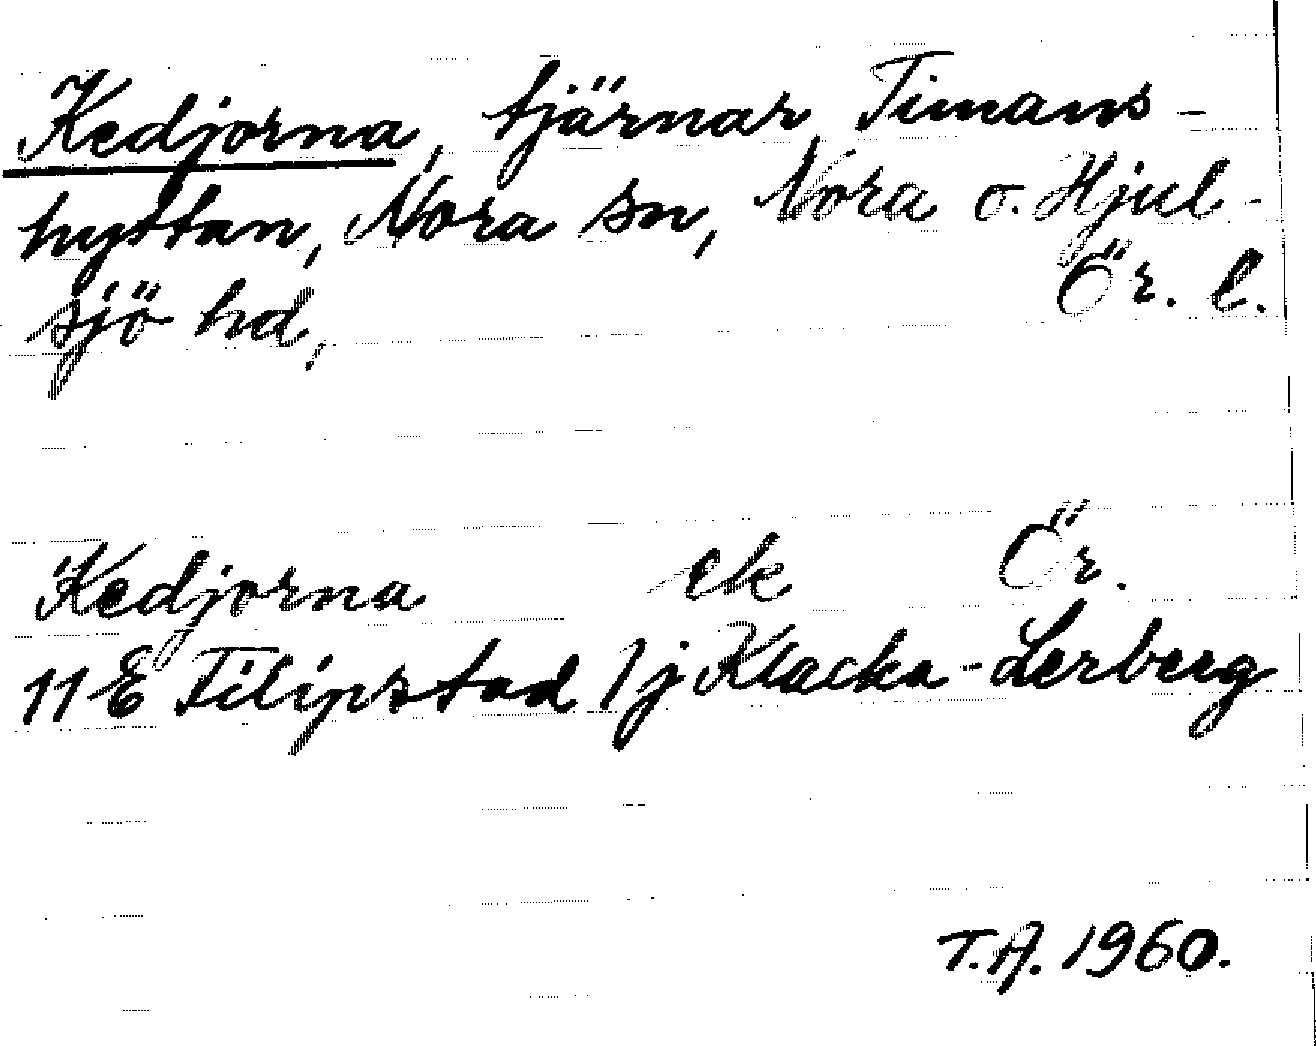 Kedjorna, tjärnar, Timans-
hyttan, Nora sn, Nora o. Hjul-
sjö hd, Ör. l.
Kedjorna ek Ör.
11 E Filipstad 1j Klacka-Lerberg
T.A. 1960.